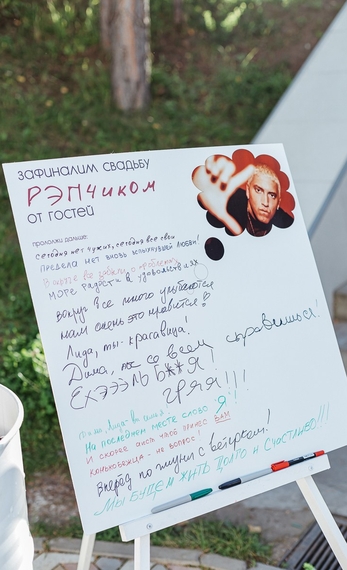 зафиналим свадьбу
РЭПчиком
от гостей
продолжи дальше:
сегодня нет чужих, сегодня все свои
предела нет вновь вспыхнувшей любви!
море радости в удовольствиях
вокруг все много улыбаются
нам очень это нравится!
Лида, ты - красавица!
Дима, ты со всем справишься!
ЕХЭЭЭЛЬ Б**Я!
ГРЯЯ!!!
На последнем месте слово "Я"!
И скоре аист чтоб принес ВАМ
конькобежца - не вопрос!
Вперёд по жизни с ветерком!
Мы будем жить долго и счастливо!!!